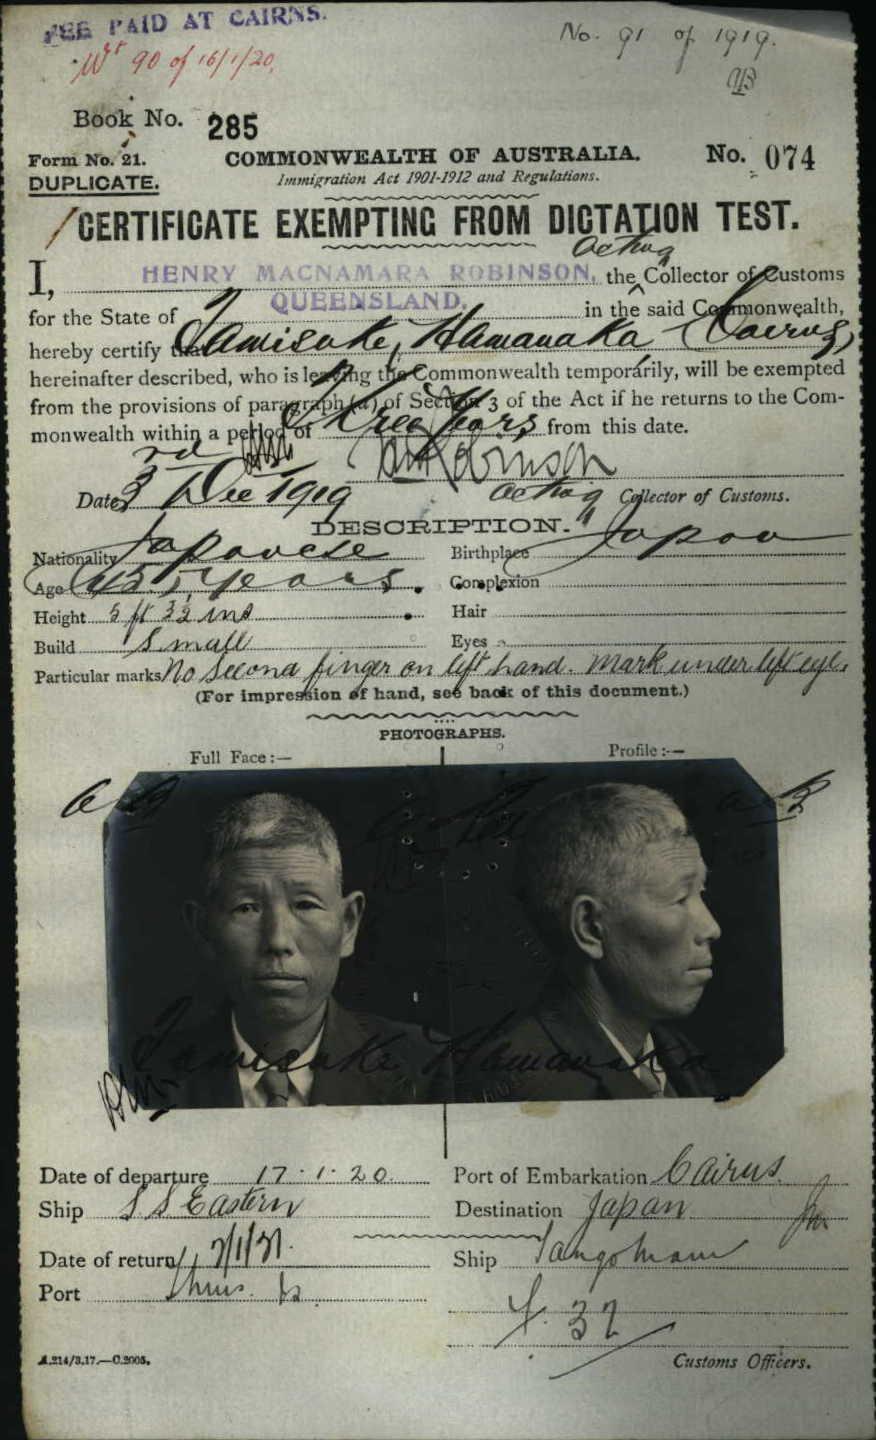 FEE PAID AT CAIRNS.
No. 91 of 1919.
Wt 90 of 16/1/20.
Book No. 285
Form No. 21.
COMMONWEALTH OF AUSTRALIA.
No. 074
DUPLICATE.
Immigration Act 1901-1912 and Regulations.
CERTIFICATE EXEMPTING FROM DICTATION TEST.
acting
I, HENRY MACNAMARA ROBINSON, the Collector of Customs
for the State of QUEENSLAND. in the said Commonwealth,
hereby certify that Tamisuke Hamanaka (Cairns)
hereinafter described, who is leaving the Commonwealth temporarily, will be exempted
from the provisions of paragraph (a) of Section 3 of the Act if he returns to the Com-
monwealth within a period of Three Years from this date.
Robinson
Date 3rd Dec 1919
acting Collector of Customs.
DESCRIPTION.
Nationality Japanese
Birthplace Japan
Age 45 years.
Complexion
Height 5 ft 3½ ins
Hair
Build Small
Eyes
Particular marks No second finger on left hand. Mark under left eye.
(For impression of hand, see back of this document.)
PHOTOGRAPHS.
Full Face:—
Profile:—
Tamisuke Hamanaka
Date of departure 17.1.20.
Port of Embarkation Cairns.
Ship S S Eastern
Destination Japan
Date of return 7/1/21.
Ship Tango Maru
Port
32
A.214/3.17.—C.2005.
Customs Officers.